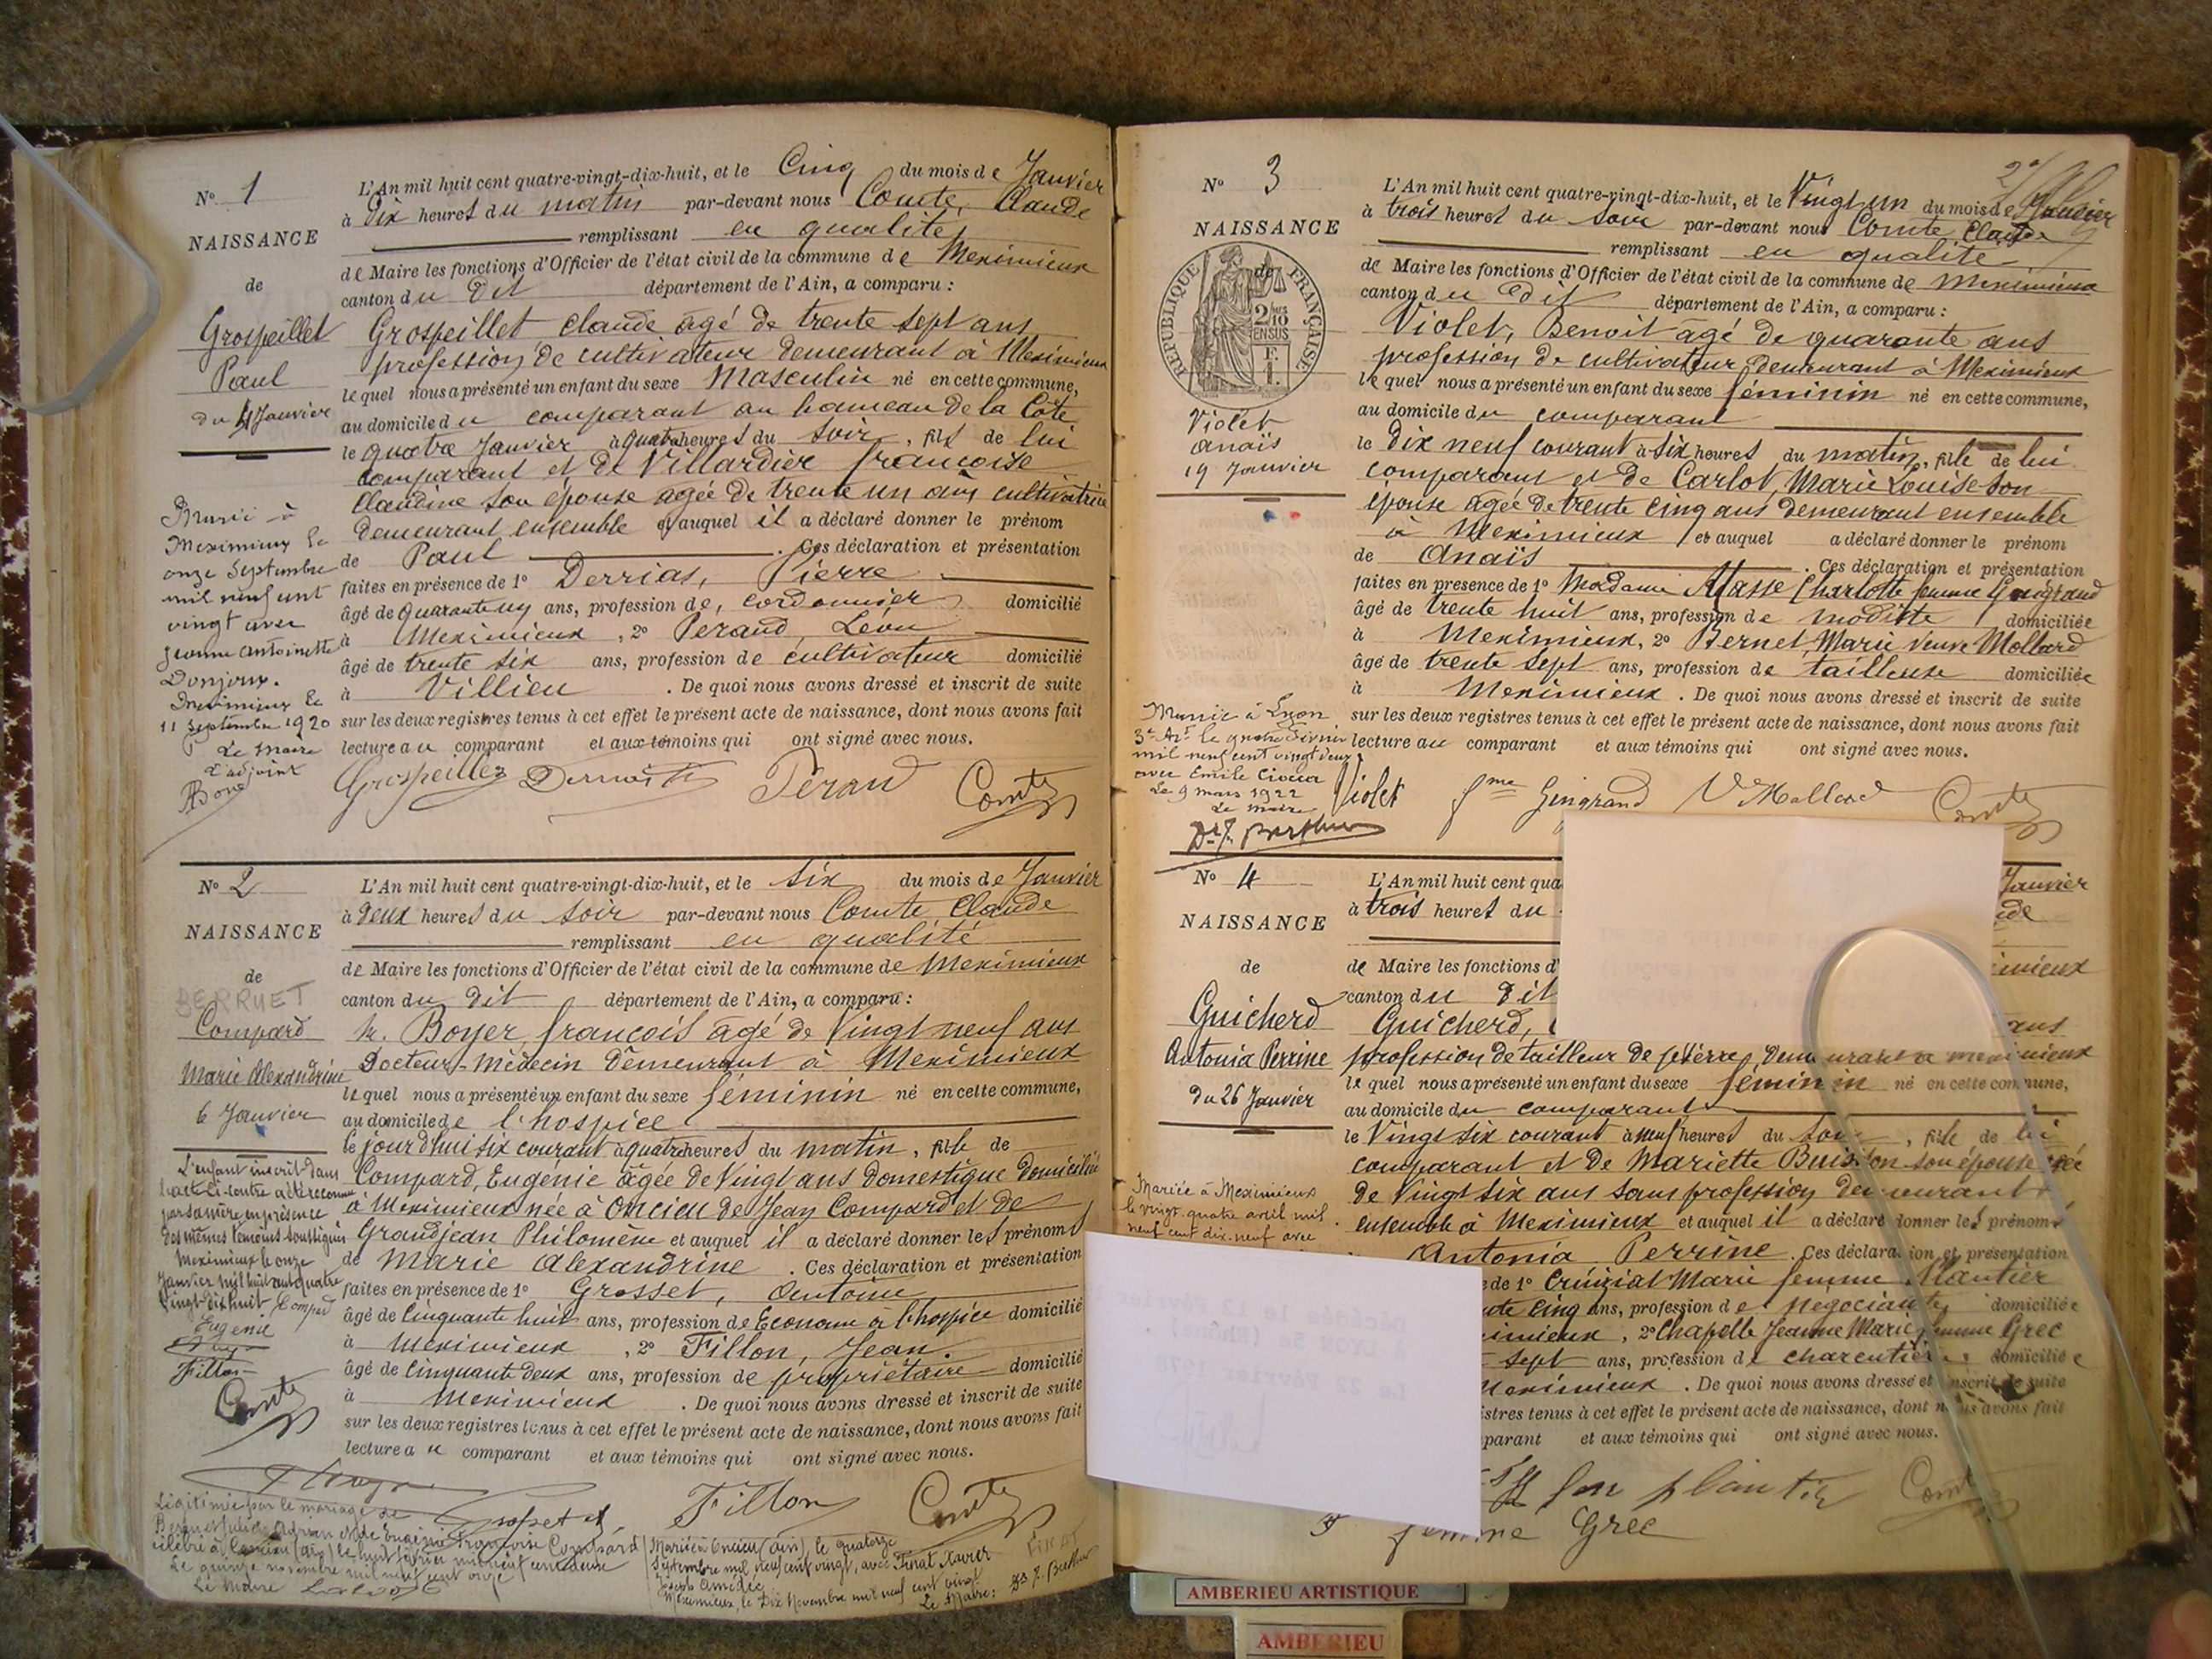 N° 1
NAISSANCE
de
Grospeillet
Paul
du 4 Janvier
L'An mil huit cent quatre-vingt-dix-huit, et le Cinq du mois de Janvier
à dix heures du matin par-devant nous Comte, Claude
remplissant en qualité
de Maire les fonctions d'Officier de l'état civil de la commune de Meximieux
canton du dit département de l'Ain, a comparu :
Grospeillet Claude âgé de trente sept ans
profession de cultivateur demeurant à Meximieux
lequel nous a présenté un enfant du sexe Masculin né en cette commune,
au domicile du comparant au hameau de la Côte
le quatre Janvier à quatre heures du soir, fils de lui
comparant et de Villardier françoise
Claudine son épouse agée de trente un ans cultivatrice
demeurant ensemble et auquel il a déclaré donner le prénom
de Paul . Ces déclaration et présentation
faites en présence de 1° Derrias, Pierre
âgé de quarante un ans, profession de, cordonnier domicilié
à Meximieux, 2° Peraud, Léon
âgé de trente six ans, profession de cultivateur domicilié
à Villieu . De quoi nous avons dressé et inscrit de suite
sur les deux registres tenus à cet effet le présent acte de naissance, dont nous avons fait
lecture au comparant et aux témoins qui ont signé avec nous.
Marié à
Meximieux le
onze Septembre
mil neuf cent
vingt avec
Jeanne Antoinette
Donjoux.
Meximieux le
11 Septembre 1920
Le Maire
L'adjoint
Grospeillet Péraud Comte
N° 2
NAISSANCE
de
BERRUET
Compard
Marie Alexandrine
6 Janvier
L'An mil huit cent quatre-vingt-dix-huit, et le six du mois de Janvier
à deux heures du soir par-devant nous Comte Claude
remplissant en qualité
de Maire les fonctions d'Officier de l'état civil de la commune de Meximieux
canton du dit département de l'Ain, a comparu :
Mr. Boyer, françois âgé de Vingt neuf ans
Docteur-Médecin demeurant à Meximieux
lequel nous a présenté un enfant du sexe féminin né en cette commune,
au domicile de l'hospice
le jourd'hui six courant à quatre heures du matin, fille de
Compard, Eugénie âgée de Vingt ans domestique domiciliée
à Meximieux née à Oncieu de Jean Compard et de
Grandjean Philomène et auquel il a déclaré donner les prénoms
de Marie Alexandrine . Ces déclaration et présentation
faites en présence de 1° Grosset, Antoine
âgé de Cinquante huit ans, profession de Econome à l'hospice domicilié
à Meximieux, 2° Fillon, Jean.
âgé de Cinquante deux ans, profession de propriétaire domicilié
à Meximieux . De quoi nous avons dressé et inscrit de suite
sur les deux registres tenus à cet effet le présent acte de naissance, dont nous avons fait
lecture au comparant et aux témoins qui ont signé avec nous.
L'enfant inscrit dans
l'acte ci-contre a été reconnu
par sa mère en présence
des mêmes témoins soussignés
Meximieux le onze
Janvier mil huit cent quatre
vingt-dix huit Compard
Eugénie
Fillon
Comte
Fillon Comte
Légitimée par le mariage de
Adrien et de Eugénie Françoise Compard
célébré à (Ain) le huit février mil neuf cent
Le quinze novembre mil neuf cent onze
Le Maire
Mariée à Oncieu (Ain), le quatorze
Septembre mil neuf cent vingt, avec Finat Xavier
Joseph Amédée
Meximieux, le Dix Novembre mil neuf cent vingt
Le Maire:
N° 3
NAISSANCE
de
RÉPUBLIQUE FRANÇAISE
Violet
Anaïs
19 Janvier
L'An mil huit cent quatre-vingt-dix-huit, et le Vingt un du mois de Janvier
à trois heures du soir par-devant nous Comte Claude
remplissant en qualité
de Maire les fonctions d'Officier de l'état civil de la commune de Meximieux
canton du dit département de l'Ain, a comparu :
Violet, Benoit âgé de quarante ans
profession de cultivateur demeurant à Meximieux
lequel nous a présenté un enfant du sexe féminin né en cette commune,
au domicile du comparant
le dix neuf courant à six heures du matin, fille de lui
comparant et de Carlot, Marie Louise son
épouse agée de trente cinq ans demeurant ensemble
à Meximieux et auquel a déclaré donner le prénom
de Anaïs . Ces déclaration et présentation
faites en présence de 1° Madame Charlotte femme Gingrand
âgé de trente huit ans, profession de modiste domiciliée
à Meximieux, 2° Bernet, Marie Veuve Mollard
âgé de trente sept ans, profession de tailleuse domiciliée
à Meximieux . De quoi nous avons dressé et inscrit de suite
sur les deux registres tenus à cet effet le présent acte de naissance, dont nous avons fait
lecture au comparant et aux témoins qui ont signé avec nous.
Mariée à Lyon
3e Art le quatre février
mil neuf cent vingt deux
avec Emile
Le 9 mars 1922
Le Maire
Violet fme Gingrand Ve Mollard Comte
N° 4
NAISSANCE
de
Guicherd
Antonia Perrine
du 26 Janvier
L'An mil huit cent qua
Janvier
à trois heures du
de Maire les fonctions d'
imieux
canton du dit
Guicherd,
ans
profession de tailleur de pierres demeurant à Meximieux
lequel nous a présenté un enfant du sexe féminin né en cette commune,
au domicile du comparant
le Vingt six courant à neuf heures du soir, fille de lui
comparant et de Mariette Buisson son épouse agée
de Vingt six ans sans profession demeurant
ensemble à Meximieux et auquel il a déclaré donner les prénoms
Antonia Perrine . Ces déclaration et présentation
e de 1° Marie femme Plantier
nte cinq ans, profession de négociante domiciliée
imieux, 2° Chapelle Jeanne Marie femme Grec
sept ans, profession de charcutière domiciliée
Meximieux . De quoi nous avons dressé et inscrit de suite
istres tenus à cet effet le présent acte de naissance, dont nous avons fait
parant et aux témoins qui ont signé avec nous.
Mariée à Meximieux
le vingt quatre avril mil
neuf cent dix-neuf avec
plantier Comte
femme Grec
AMBERIEU ARTISTIQUE
AMBERIEU